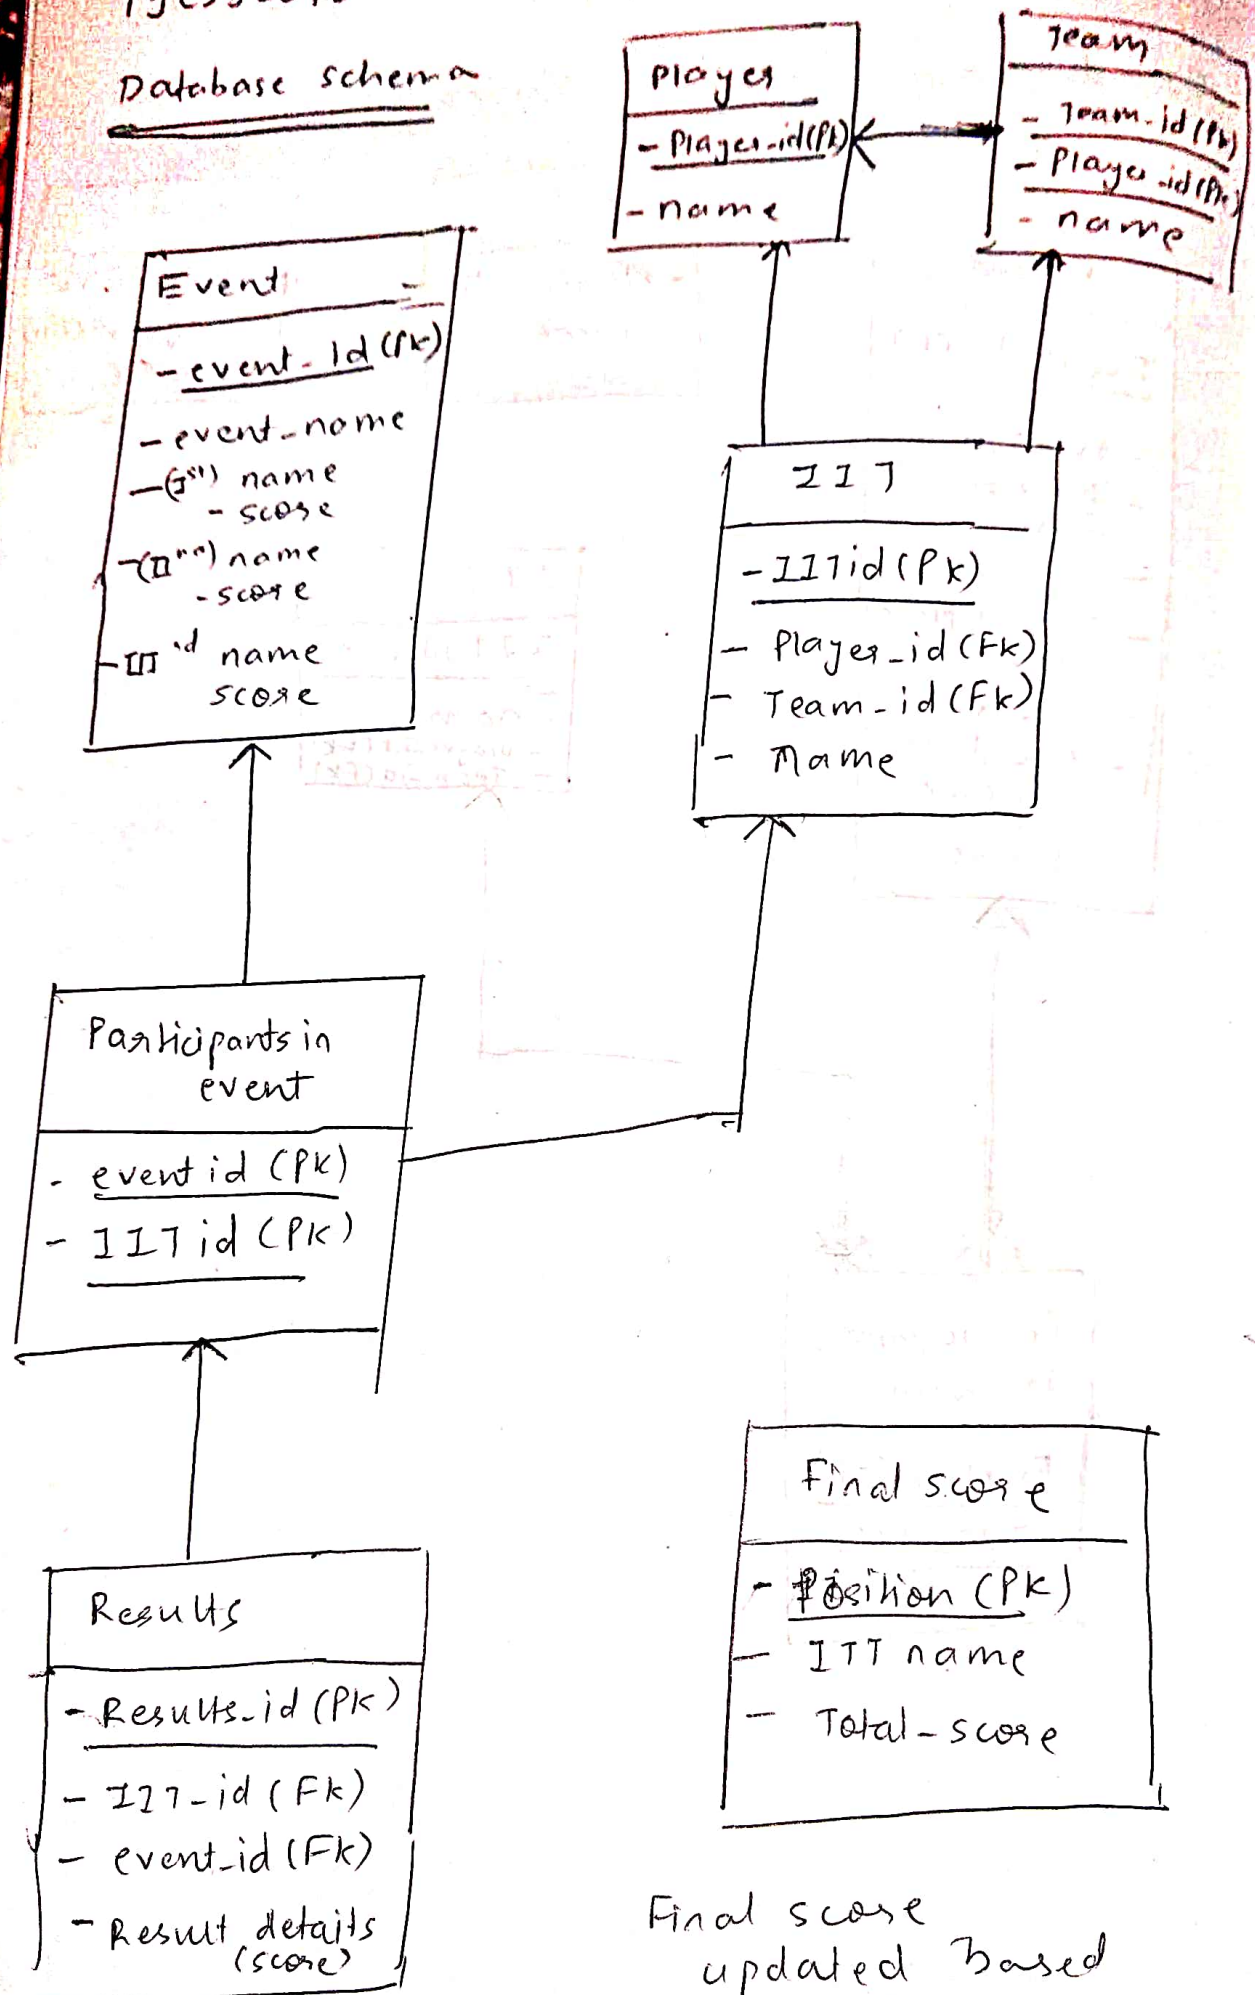 Database schema
Player
- Player_id(Pk)
- name
Team
- Team_id(Pk)
- Player_id(Pk)
- name
Event
- event_id (Pk)
- event_name
- (Ist) name
- score
- (IInd) name
- score
- III rd name
score
IIT
- IITid (Pk)
- Player_id (Fk)
- Team_id (Fk)
- Name
Participants in
event
- event id (PK)
- IIT id (PK)
Results
- Results_id (PK)
- IIT_id (Fk)
- event_id (Fk)
- Result details
(score)
Final score
- Position (PK)
- IIT name
- Total_score
Final score
updated Based